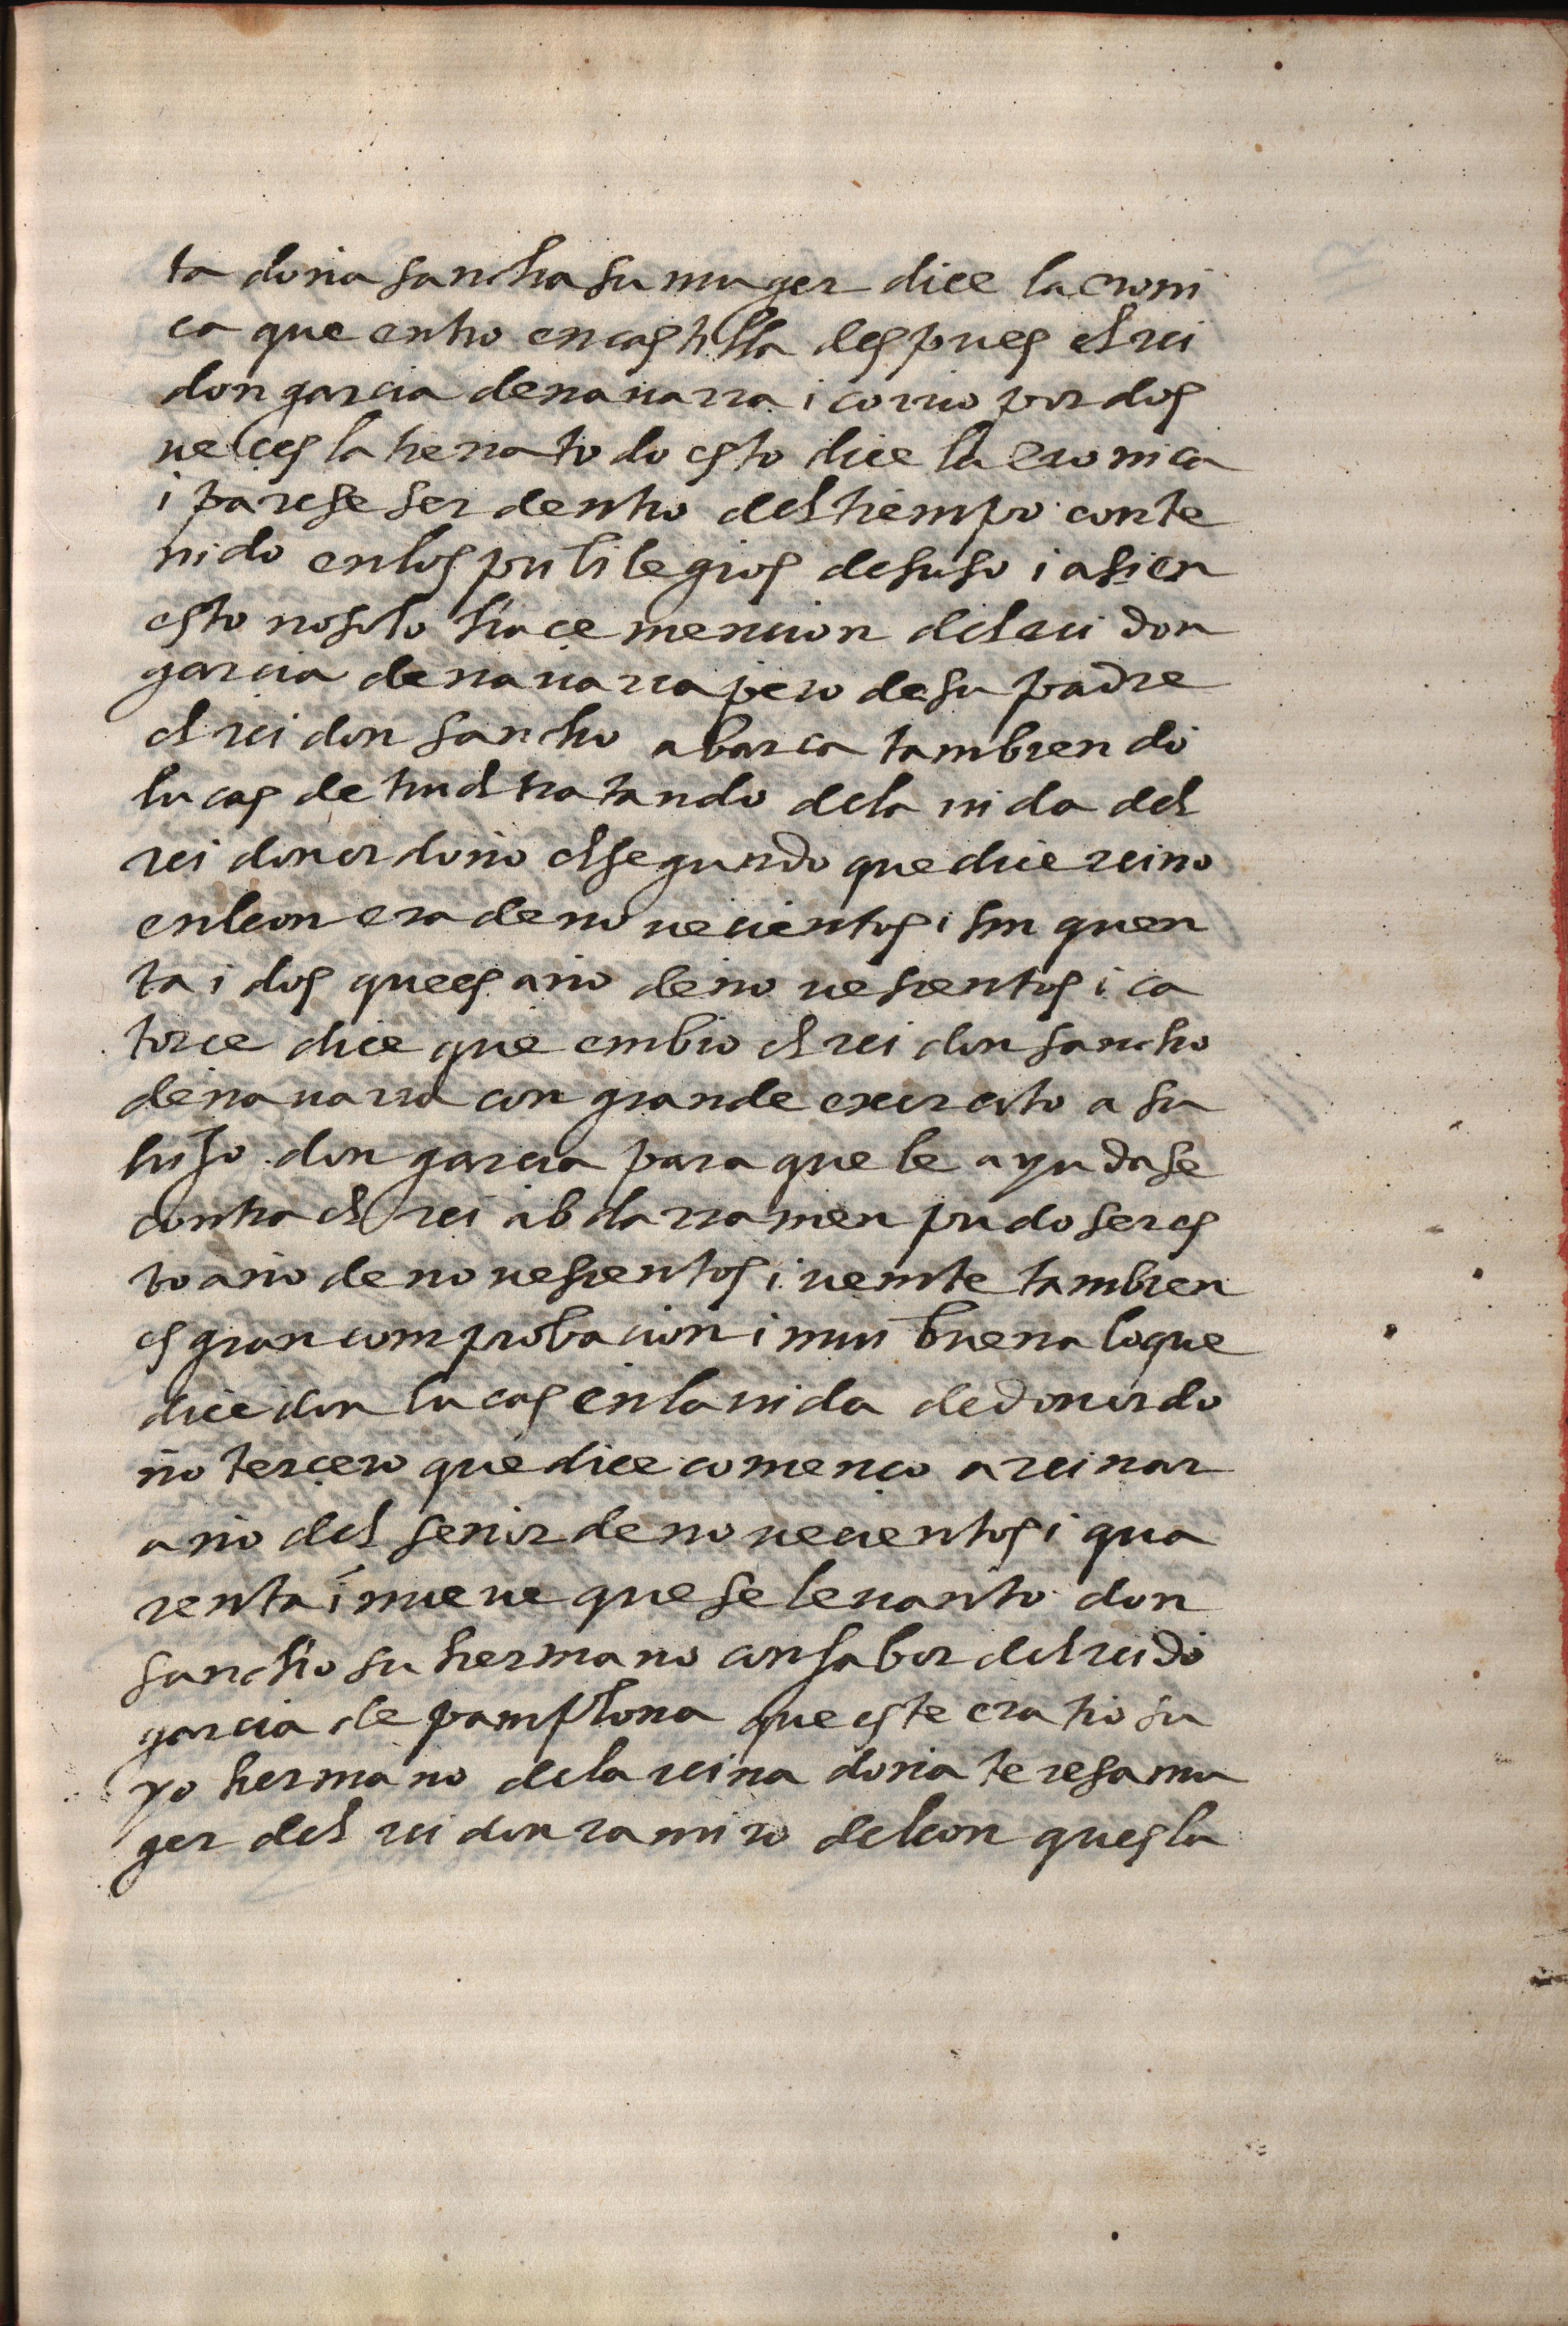 ta doña sancha su muger dice la croni
ca que entro en castilla despues el rei
don garcia de nauarra i corrio por dos
ueces la tierra todo esto dice la cronica
i parese ser dentro del tiempo conte
nido en los preuilegios de suso i asi en
esto no solo hace mencion del rei don
garcia de nauarra pero de su padre
el rei don sancho abarca tambien dō
lucas de tui el tratando de la uida del
rei don ordoño el segundo que dice reino
en leon era de nouecientos i sinquen
ta i dos que es año de nouesientos i ca
torce dice que embio el rei don sancho
de nauarra con grande exercito a su
hijo don garcia para que le ayudase
contra el rei abdarramen pudo ser es
to año de nouesientos i ueinte tambien
es gran comprobacion i mui buena lo que
dice don lucas en la uida de don ordo
ño tercero que dice començo a reinar
año del señor de nouecientos i qua
renta i nueue que se leuanto don
sancho su hermano con sabor del rei dō
garcia de pamplona que este era tio su
yo hermano de la reina doña teresa mu
ger del rei don ramiro de leon que es la